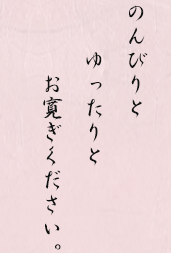 のんびりと
ゆったりと
お寛ぎください。